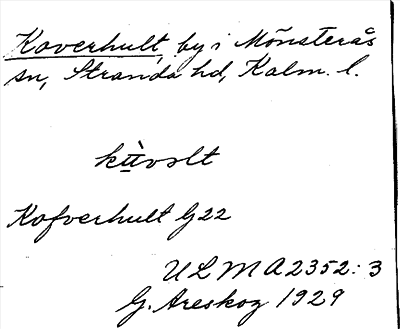 Koverhult, by i Mönsterås
sn, Stranda hd, Kalm. l.
Kofverhult G22
ULMA 2352:3
G. Areskog 1929